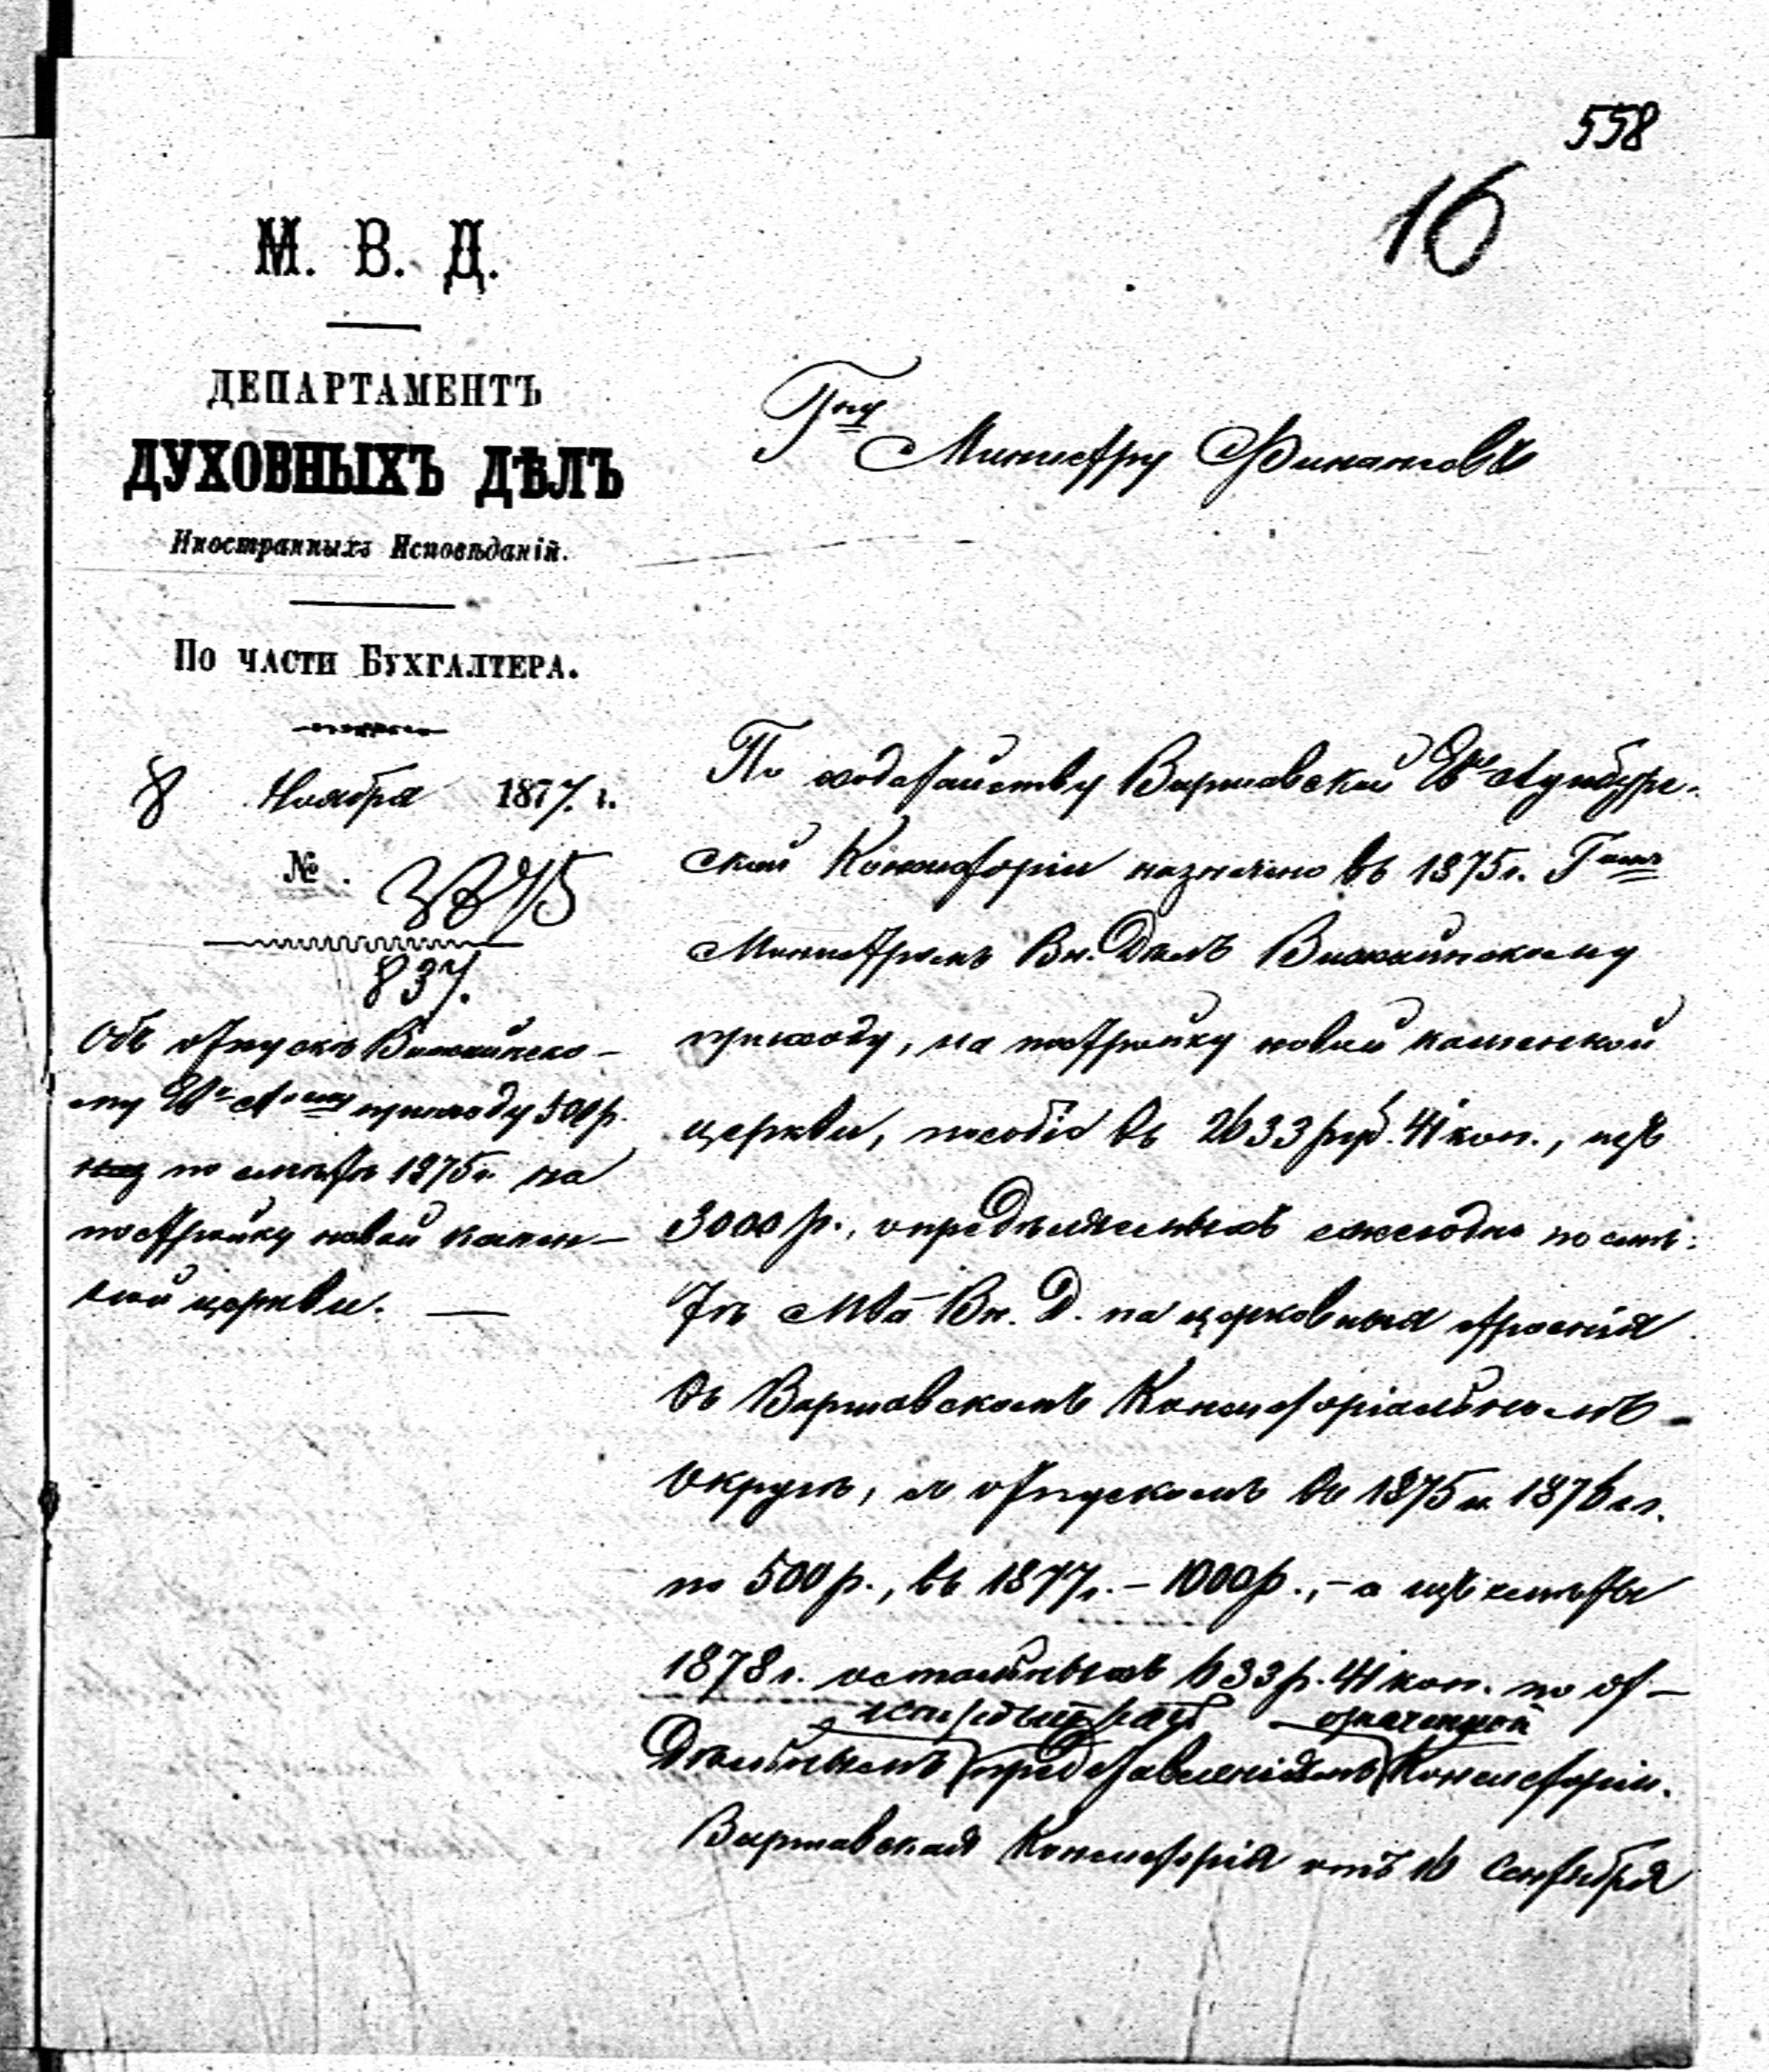 558
16
М. В. Д.
ДЕПАРТАМЕНТЪ
ДУХОВНЫХЪ ДѢЛЪ
Иностранныхъ Исповѣданій.
По части Бухгалтера.
8 Ноября 1877. г.
№.
837.
Объ отпускѣ Вижайнско-
му Ев. приходу 500 р.
по смѣтѣ 1875 г. на
постройку новой камен-
ной церкви. —
Гну Министру Финансовъ
По ходатайству Варшавской Ев. Аугсбург-
ской Консисторіи назначено въ 1875 г. Гномъ
Министромъ Вн. Дѣлъ Вижайнскому
приходу, на постройку новой каменной
церкви, пособіе въ 2633 руб. 41 коп., изъ
3000 р., опредѣляемыхъ ежегодно по смѣ-
тѣ Мва Вн. Д. на церковныя строенія
въ Варшавскомъ Консисторіальномъ
округѣ, съ отпускомъ въ 1875 и 1876 гг.
по 500 р., въ 1877 г. – 1000 р., – а изъ смѣты
1878 г. остальныхъ 633 р. 41 коп. по от-
каждый разъ означенной
дѣльнымъ представленіямъ Консисторіи.
Варшавская Консисторія отъ 16 Сентября